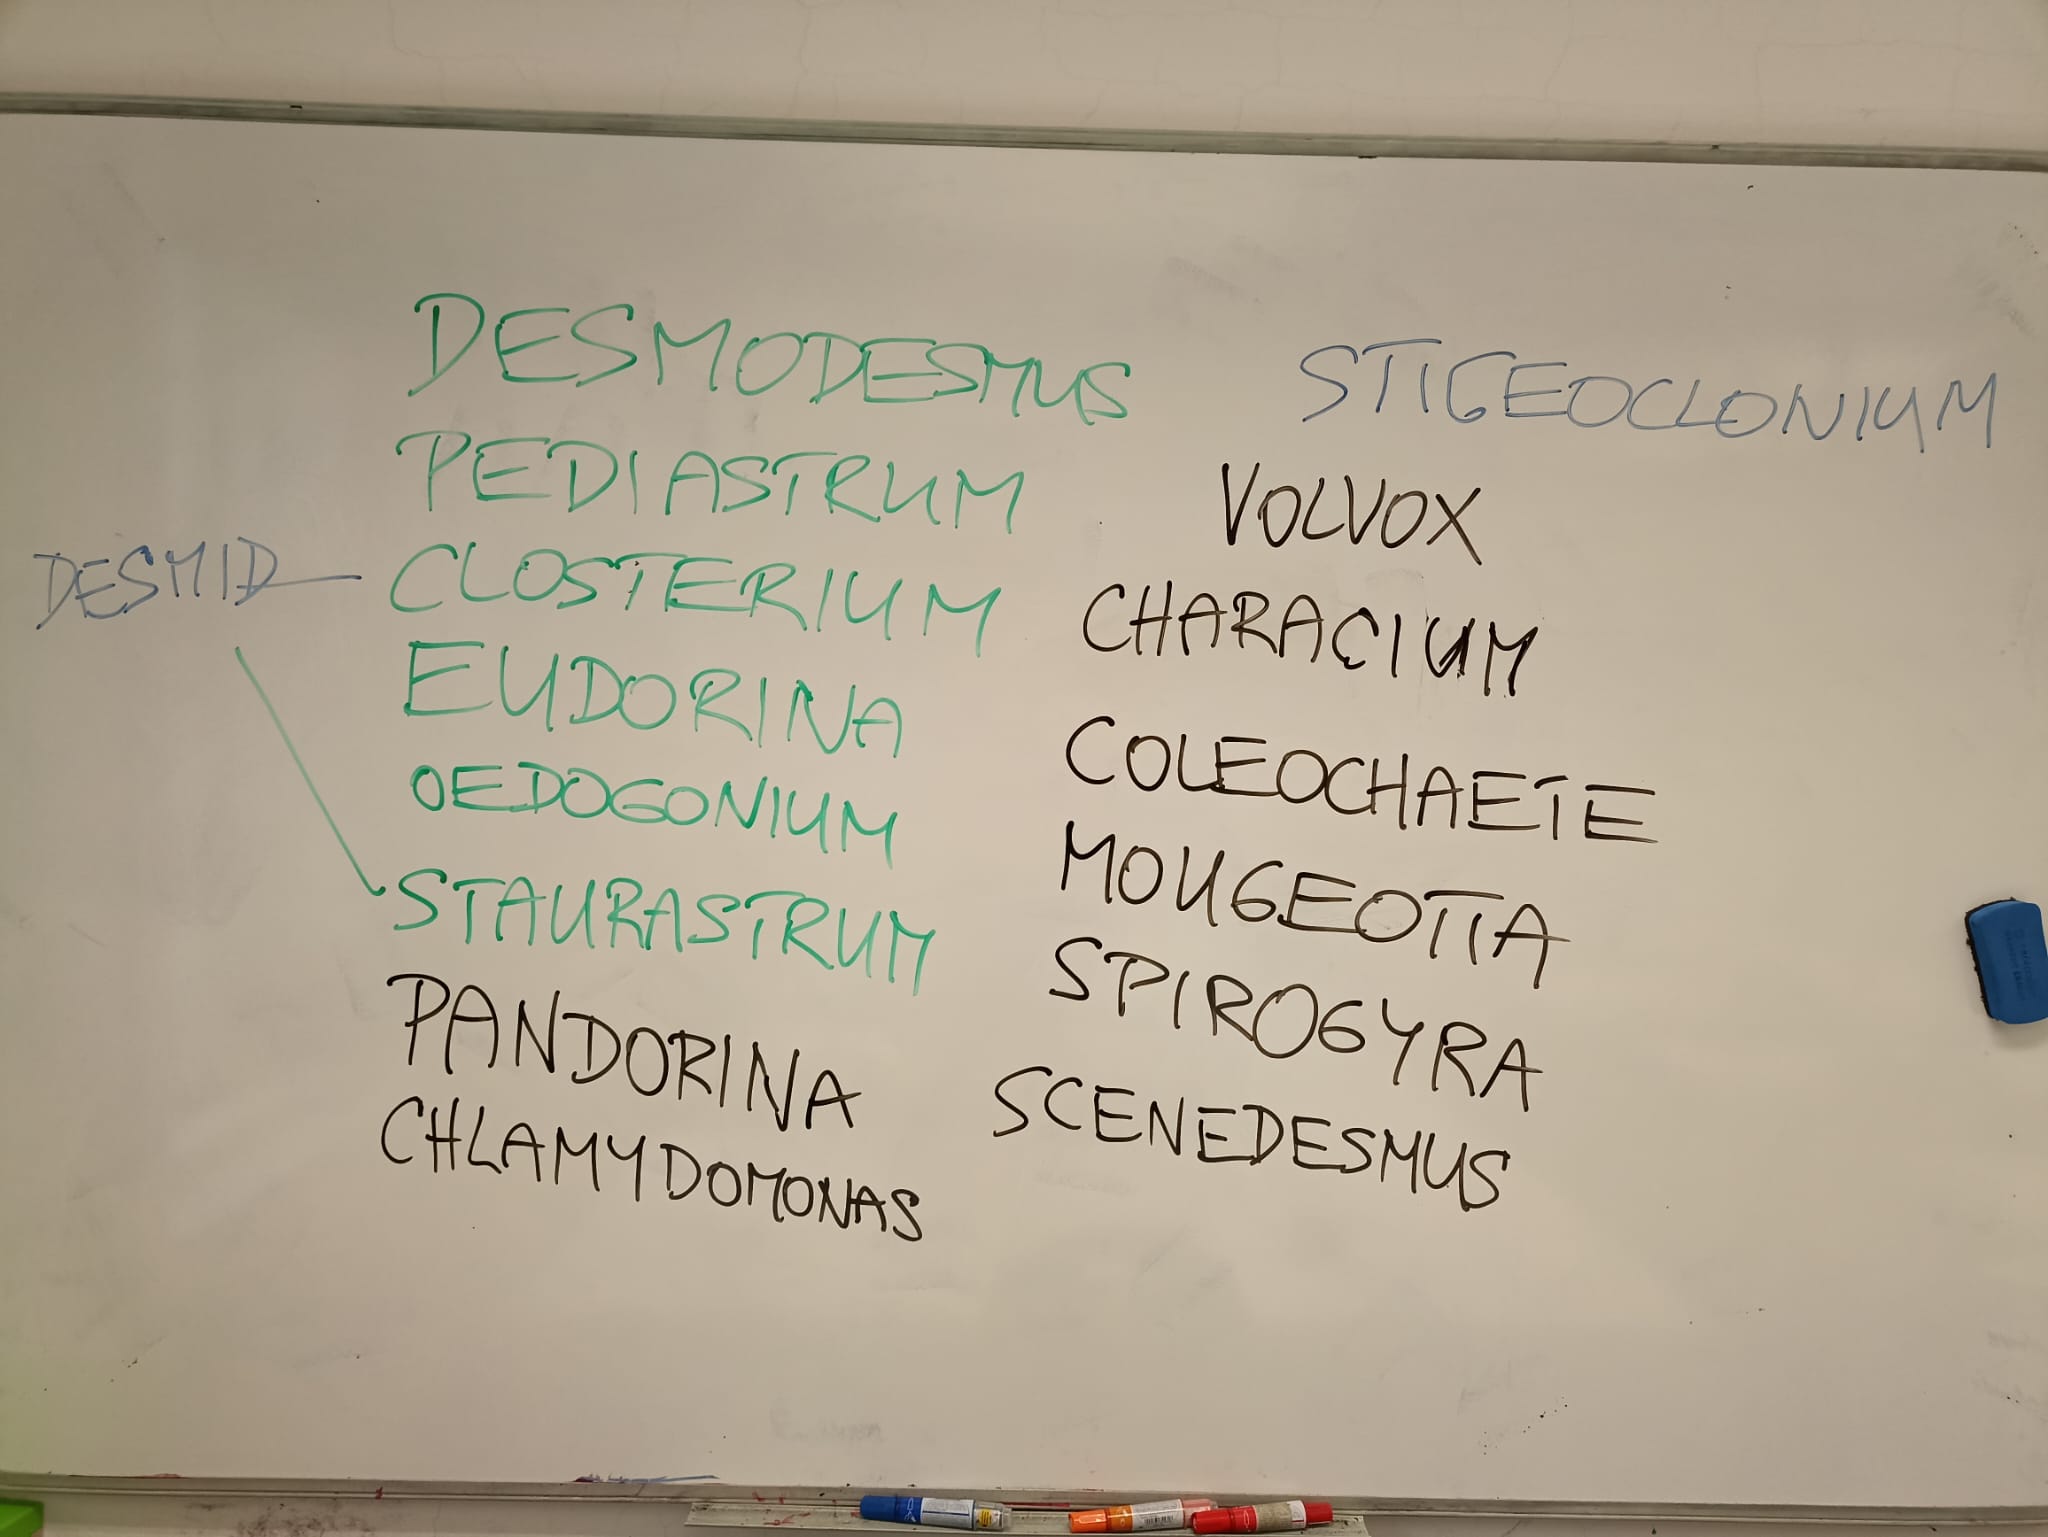 DESMODESMUS
PEDIASTRUM
DESMID
CLOSTERIUM
EUDORINA
OEDOGONIUM
STAURASTRUM
PANDORINA
CHLAMYDOMONAS
STIGEOCLONIUM
VOLVOX
CHARACIUM
COLEOCHAETE
MOUGEOTIA
SPIROGYRA
SCENEDESMUS